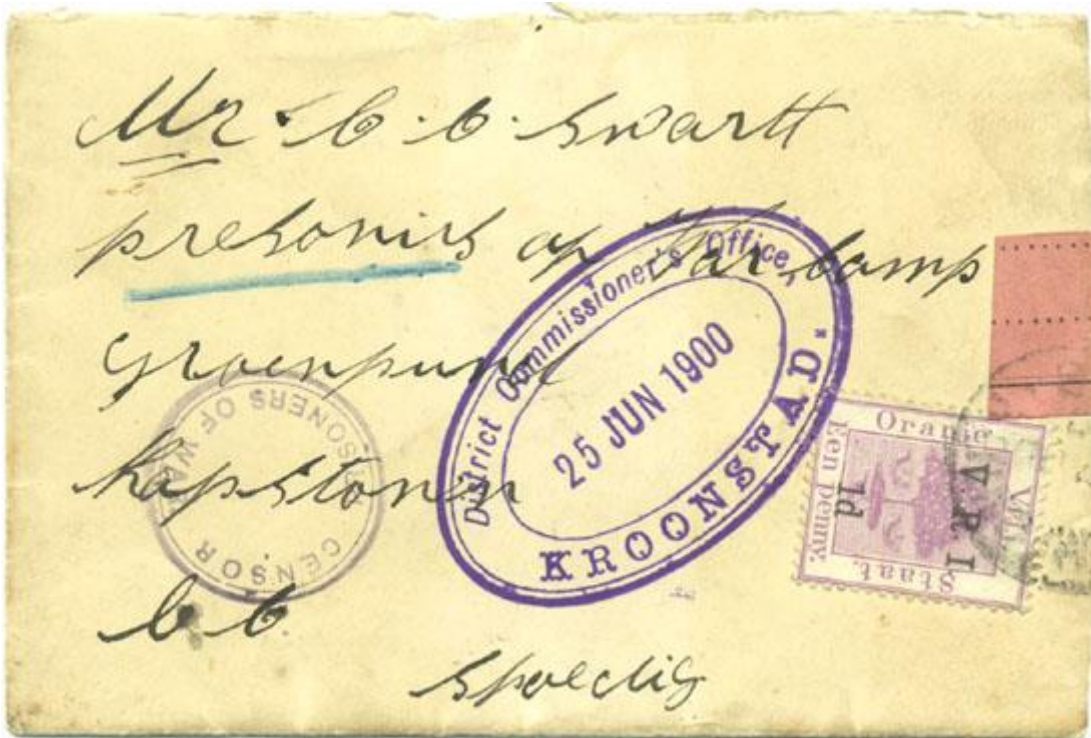 Mr. C. C. Swartt
presonirs op Var Camp
Groenpunt
Kapstown
C C
Spoedig
District Commissioner's Office,
25 JUN 1900
KROONSTAD.
CENSOR
PRISONERS OF WAR
Oranje
Vrij
Staat.
Een penny.
V R I
1d